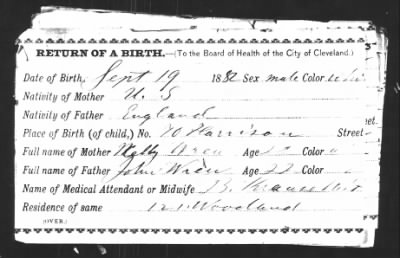 RETURN OF A BIRTH.—(To the Board of Health of the City of Cleveland.)
Date of Birth, Sept 19 1882 Sex male Color
Nativity of Mother U. S
Nativity of Father England
Place of Birth (of child,) No. 70 Harrison Street
Full name of Mother Wren Age Color
Full name of Father John Wren Age 22 Color
Name of Medical Attendant or Midwife
Residence of same 121 Woodland
(OVER.)